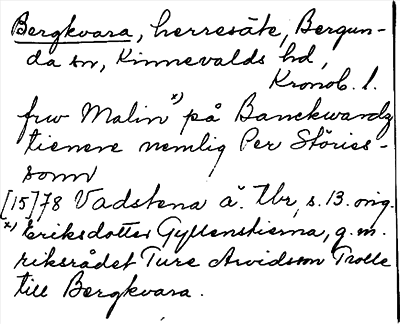 Bergkvara, herresäte, Bergun-
da sn, Kinnevalds hd,
Kronob. l.
frw Malin x) på Banckwardz
tienere nemlig Per Störies-
sonn
[15]78 Vadstena ä. Tbr, s. 13. orig.
x) Eriksdotter Gyllenstierna, g.m.
riksrådet Ture Arvidsson Trolle
till Bergkvara.